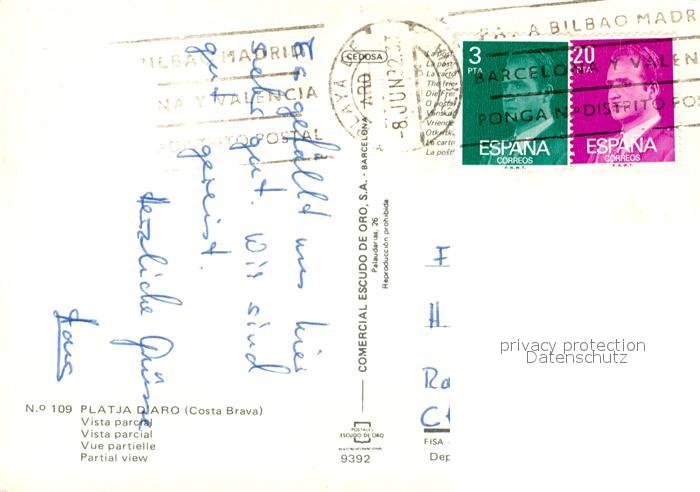 Es gefällt uns hier
sehr gut. Wir sind
gut gereist.
Herzliche Grüsse
N.º 109 PLATJA D'ARO (Costa Brava)
Vista parcial
Vista parcial
Vue partielle
Partial view
BILBAO MADRID
NA Y VALENCIA
DISTRITO POSTAL
CEDOSA
COMERCIAL ESCUDO DE ORO, S.A. - BARCELONA
Palaudarias, 26
Reproducción prohibida
POSTALES
ESCUDO DE ORO
9392
ARO
-8.JUN
3
PTA
ESPAÑA
CORREOS
F.N.M.T.
20
PTA
ESPAÑA
CORREOS
F.N.M.T.
A BILBAO MADR
BARCELONA Y VALEN
PONGA Nº DISTRITO POS
La post
La carto
The
Die
O posta
La carto
La post
F
H
Ra
CH
FISA
Dep
privacy protection
Datenschutz